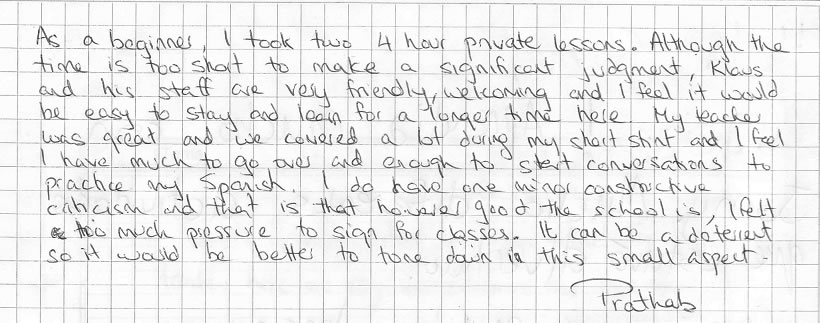 As a beginner, I took two 4 hour private lessons. Although the
time is too short to make a significant judgment, Klaus
and his staff are very friendly, welcoming and I feel it would
be easy to stay and learn for a longer time here. My teacher
was great and we covered a lot during my short stint and I feel
I have much to go over and enough to start conversations to
practice my Spanish. I do have one minor constructive
criticism and that is that however good the school is, I felt
too much pressure to sign for classes. It can be a deterrent
so it would be better to tone down in this small aspect.
Prathab